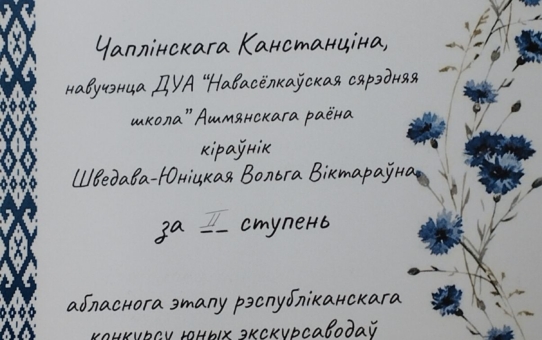 Чаплінскага Канстанціна,
навучэнца ДУА “Навасёлкаўская сярэдняя
школа” Ашмянскага раёна
кіраўнік
Шведава-Юніцкая Вольга Віктараўна
за II ступень
абласнога этапу рэспубліканскага
конкурсу юных экскурсаводаў